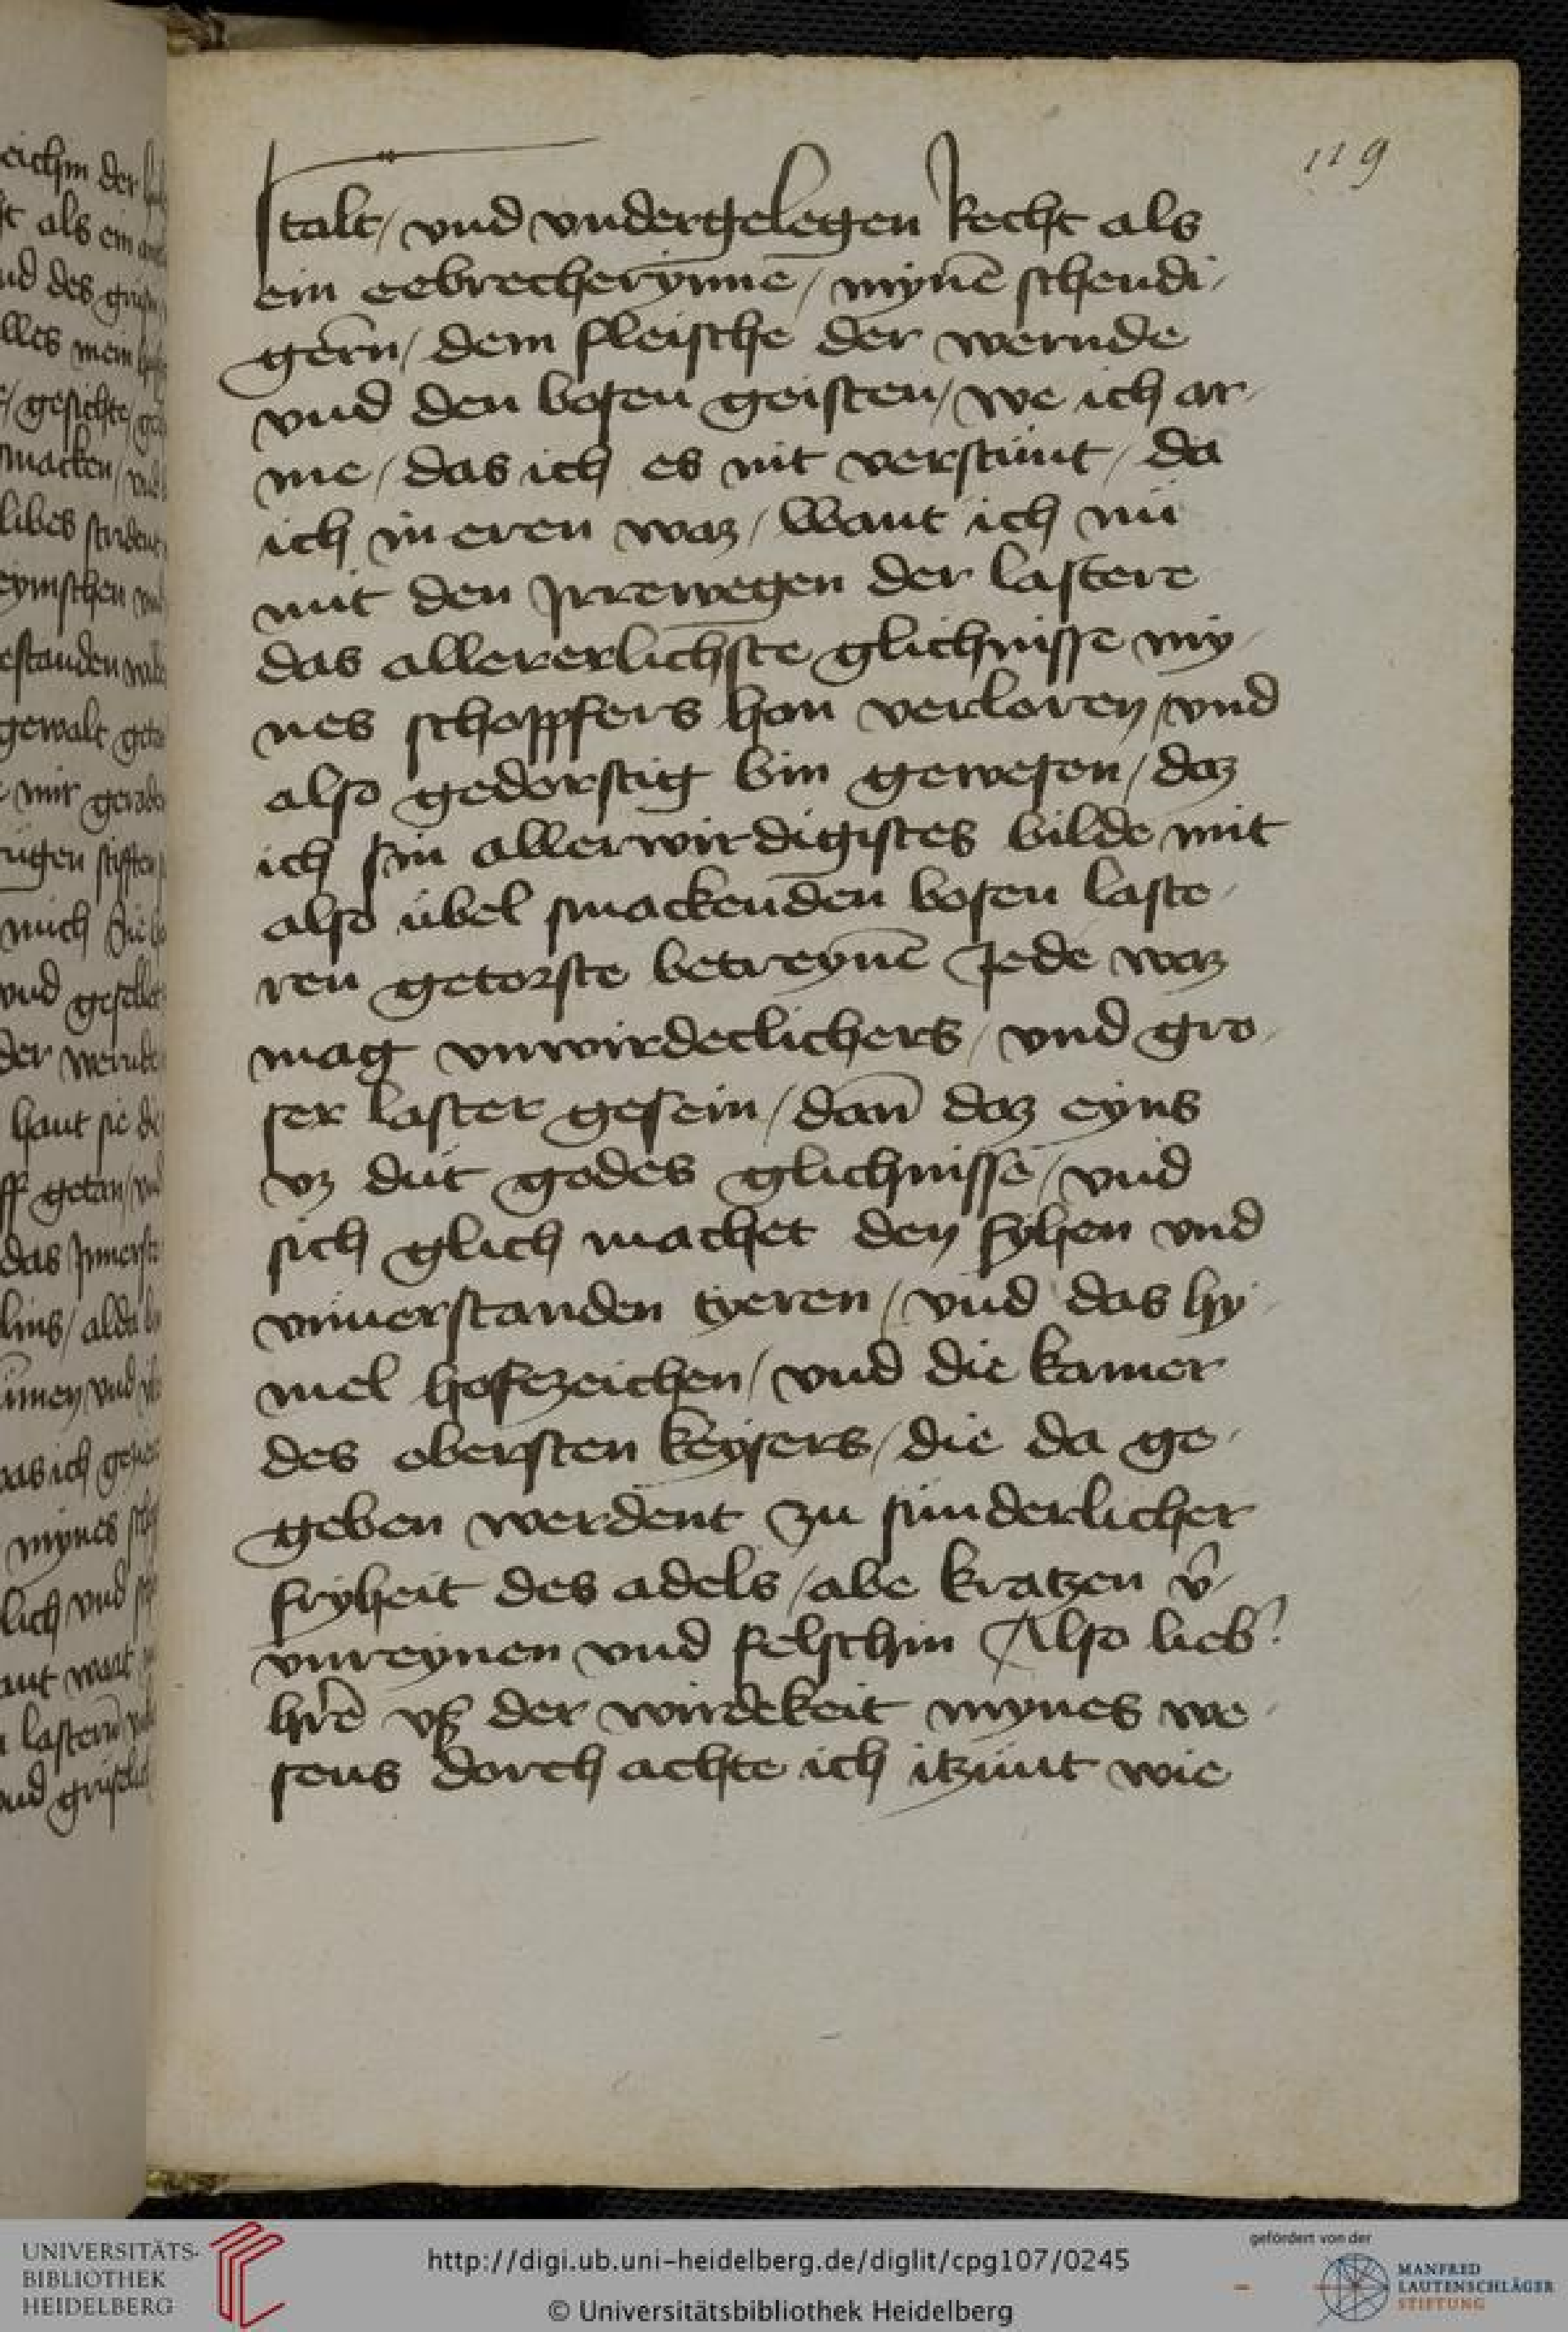 119
stalt / vnd vndergelegen Recht als
ein eebrecherÿnne / mÿnē schendi /
gern̄ / dem fleische der wernde
vnd den bosen geisten / we ich ar /
me / das ich es nit verstünt / da
ich in eren waz / Want ich nü
mit den Irrewegen der lastere
das allererlichste glichnisse mÿ /
nes schoppfers hon verloren / vnd
also gedorstig bin gewesen / daz
ich sin allerwirdigistes bilde mit
also übel smackenden bosen laste /
ren getorste betreÿnē Jede waz
mag vnwirdeclichers / vnd gro /
ser laster gesein / dan̄ daz eyns
vz düt godes glichnisse / vnd
sich glich machet den fÿhen vnd
vnuerstanden tyeren / vnd das hÿ /
mel hofezeichen / vnd die kamer
des obersten keÿsers / die da ge /
geben werdent zu sünderlicher
frÿheit des adels / abe kratzen v̄
vnreÿnen vnd felschin Also lieb̉
hr̄e vß der wirdekeit mÿnes we /
sens dorch achte ich itzünt wie
UNIVERSITÄTS-
BIBLIOTHEK
HEIDELBERG
http://digi.ub.uni-heidelberg.de/diglit/cpg107/0245
© Universitätsbibliothek Heidelberg
gefördert von der
MANFRED
LAUTENSCHLÄGER
STIFTUNG